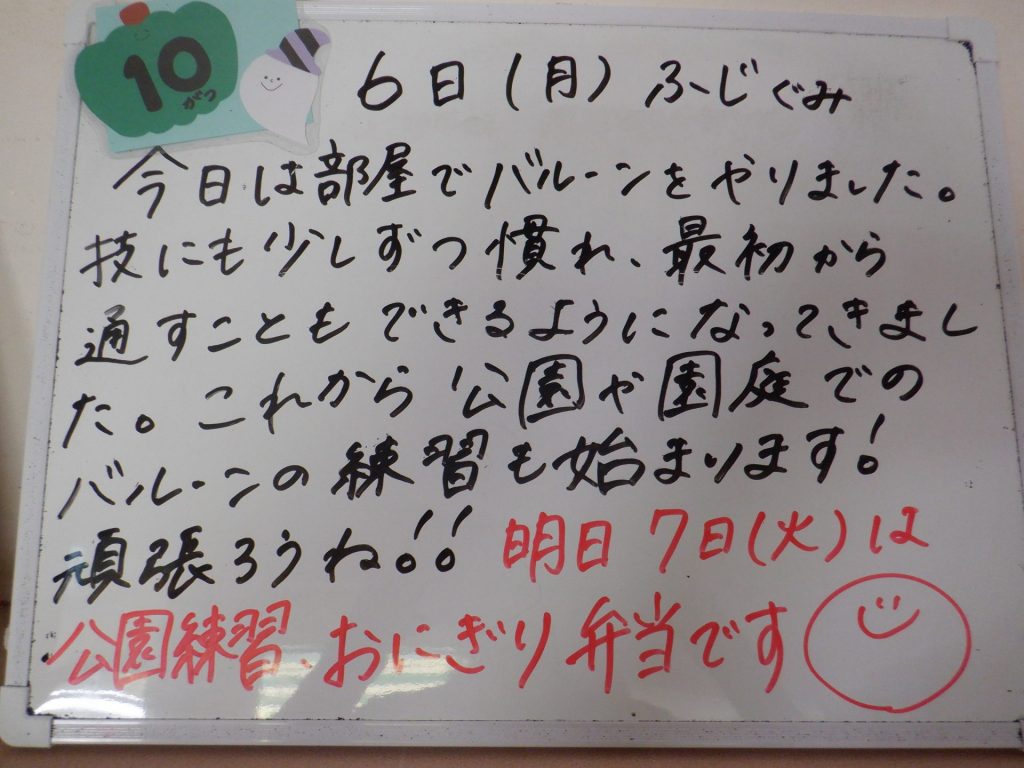 10
がつ
6日(月) ふじぐみ
今日は部屋でバルーンをやりました。
技にも少しずつ慣れ、最初から
通すこともできるようになってきまし
た。これから公園や園庭での
バルーンの練習も始まります!
頑張ろうね!! 明日7日(火)は
公園練習、おにぎり弁当です